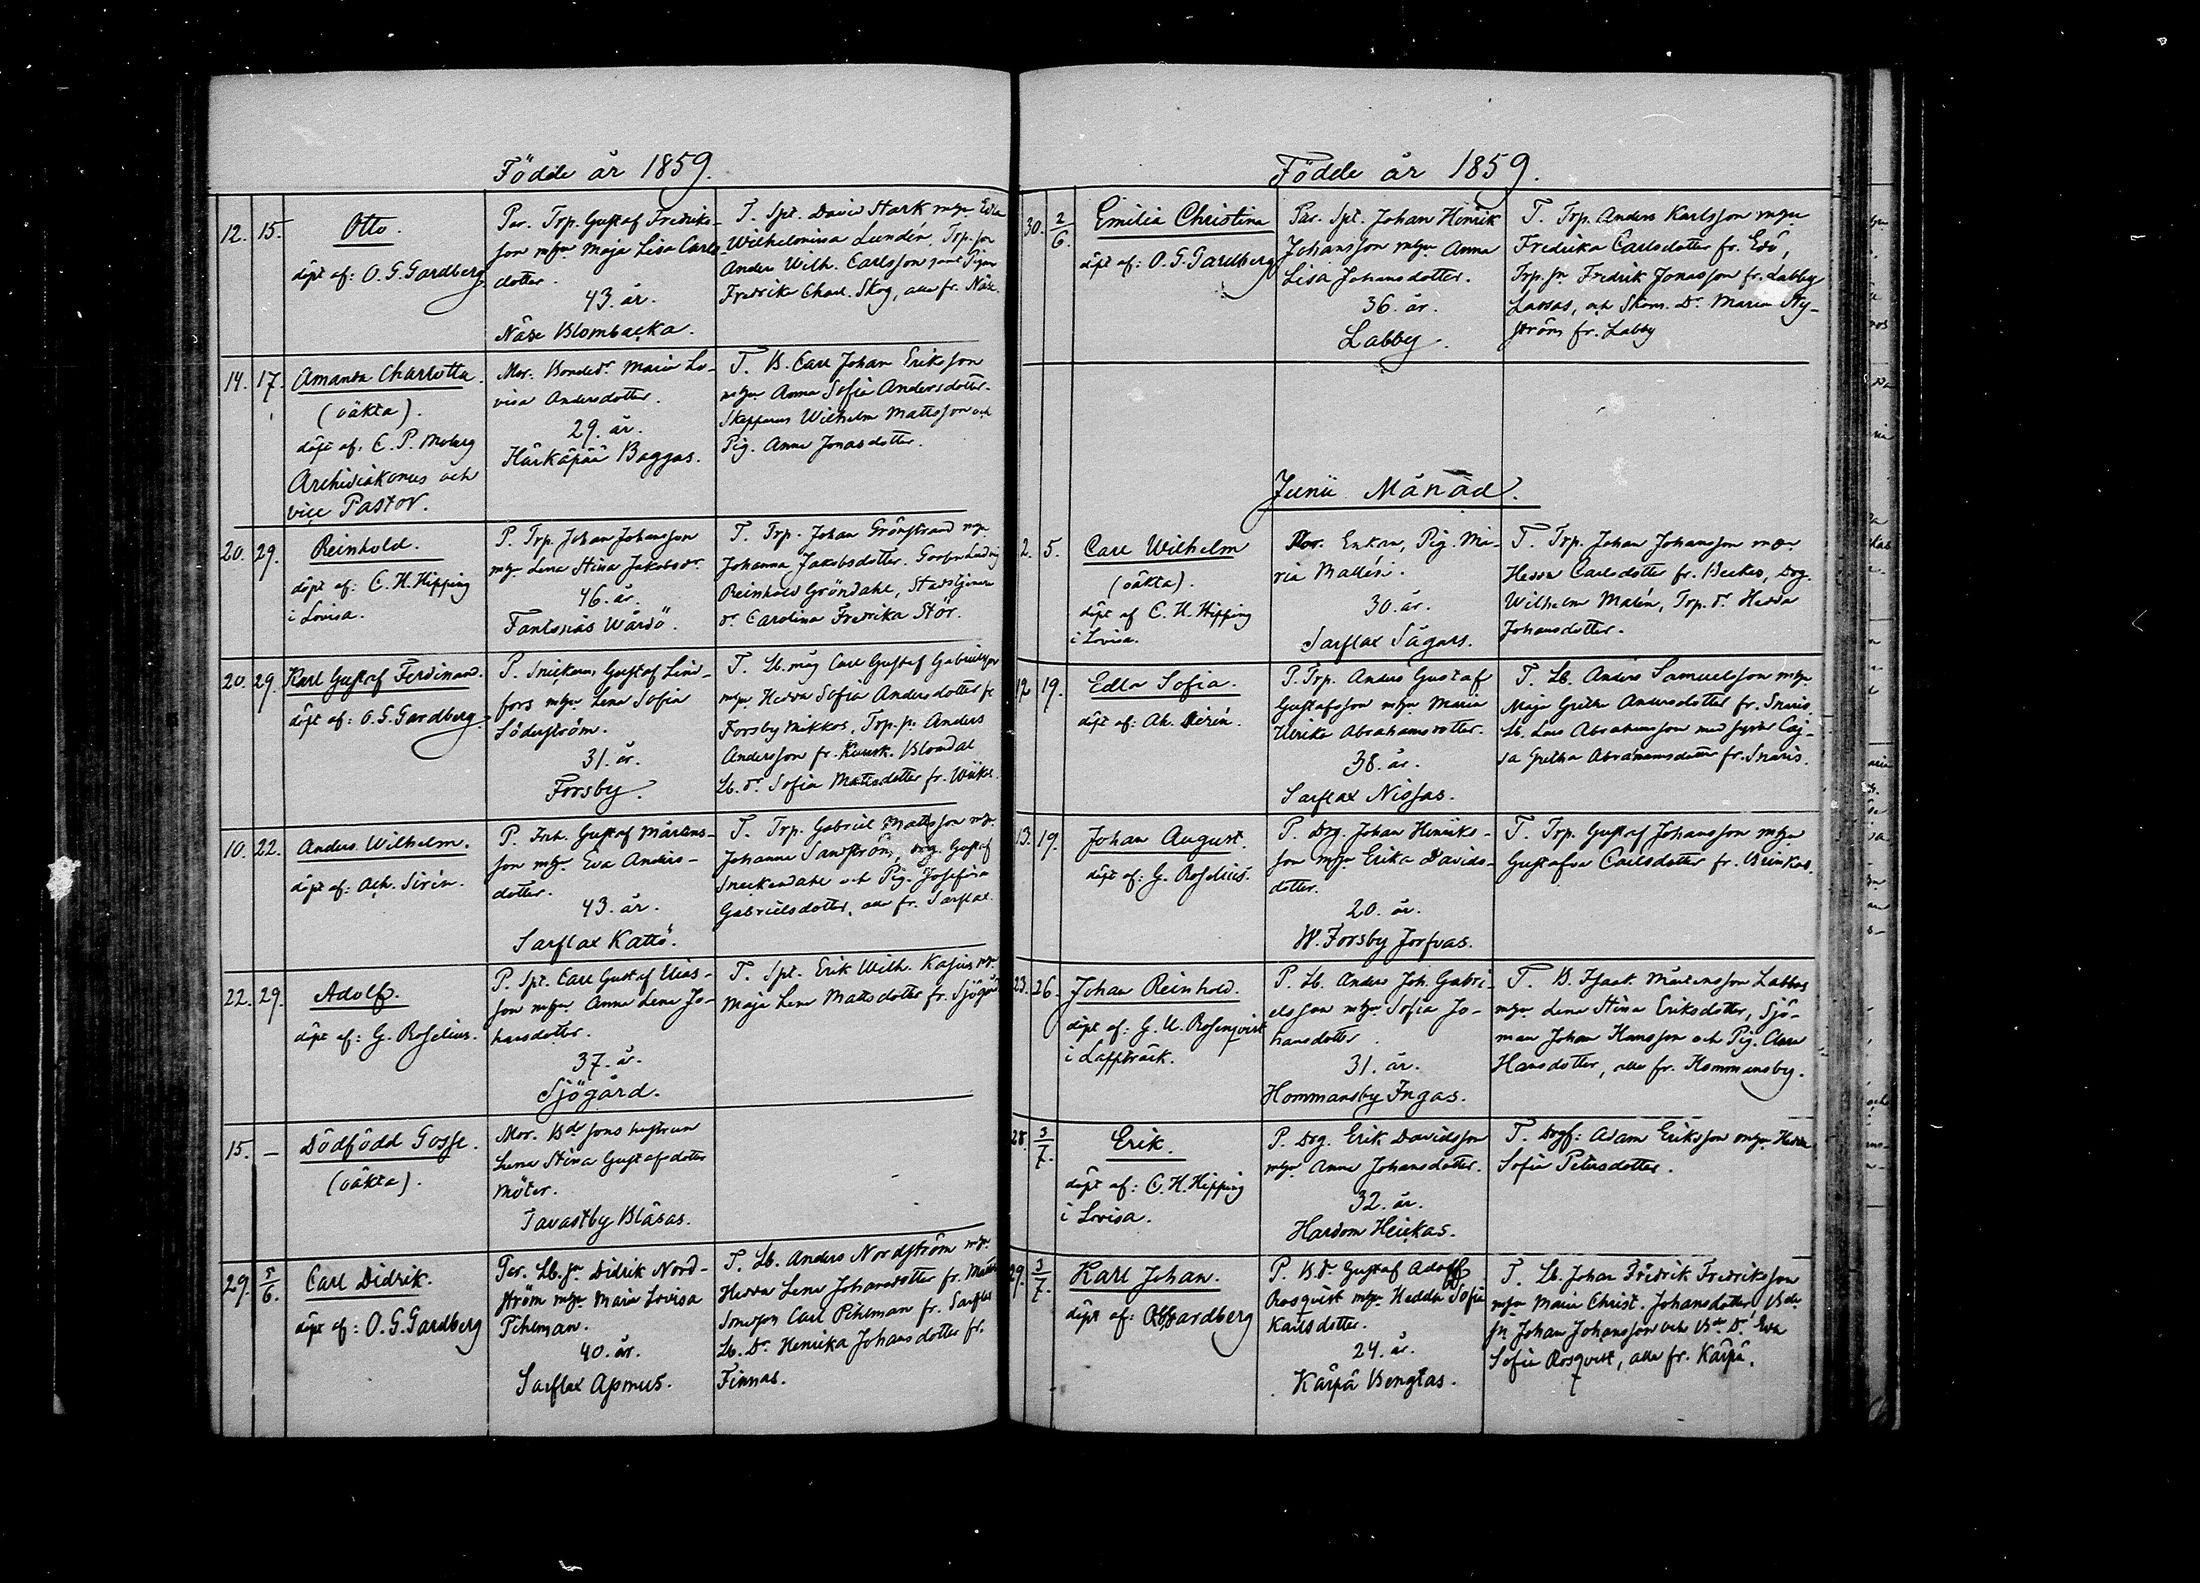 Födde år 1859.
12. 15. Otto.
döpt af: O. G. Gardberg
Par. Trp. Gustaf Fredriks-
son m hu Maja Lisa Carls-
dotter.
43. år.
Näse Blombacka.
T. Spt. David Stark m hu Edla
Wilhelmina Lundén, Trp. son
Anders Wilh. Carlsson samt Pigan
Fredrika Charl. Skog, alla fr. Näse.
14. 17. Amanda Charlotta.
(oäkta).
döpt af: C. P. Moberg
Archidiakonus och
vice Pastor.
Mor. Bonded:r Maria Lo-
visa Andersdotter.
29. år.
Härkäpää Baggas.
T. B. Carl Johan Eriksson
m hu Anna Sofia Andersdotter.
Skepparen Wilhelm Mattsson och
Pig. Anna Jonasdotter.
20. 29. Reinhold.
döpt af: C. H. Hipping
i Lovisa.
P. Trp. Johan Johansson
m hu Lena Stina Jakobsd:r
46. år.
Fantsnäs Wårdö.
T. Trp. Johan Grönstrand m hu
Johanna Jakobsdotter. Ludvig
Reinhold Gröndahl,
d:r Carolina Fredrika Stör.
20. 29. Karl Gustaf Ferdinand.
döpt af: O. G. Gardberg.
P. Snickaren Gustaf Lind-
fors m hu Lena Sofia
Söderström.
31. år.
Forsby.
T. Lb. måg Carl Gustaf Gabrielsson
m hu Hedda Sofia Andersdotter fr
Forsby Mikkos, Trp. sn Anders
Andersson fr. Kuusk. Blomdal
Lb. d:r Sofia Mattsdotter fr. Wiiks.
10. 22. Anders Wilhelm.
döpt af: Ach. Sirén.
P. Inh. Gustaf Mårtens-
son m hu Eva Anders-
dotter.
43. år.
Sarflax Kattö.
T. Trp. Gabriel Mattsson m hu
Johanna Sandström, drg. Gustaf
Sneckendahl och Pig. Josefina
Gabrielsdotter, alla fr. Sarflax.
22. 29. Adolf.
döpt af: G. Roselius.
P. Spt. Carl Gustaf Elias-
son m hu Anna Lena Jo-
hansdotter.
37. år.
Sjögård.
T. Spt. Erik Wilh. Kasius m hu
Maja Lena Mattsdotter fr. Sjögård
15. – Dödfödd Gosse.
(oäkta).
Mor. B:de sons hustrun
Lena Stina Gustafsdotter
Möter.
Tavastby Blåsas.
29. 5/6. Carl Didrik.
döpt af: O. G. Gardberg
Par. Lb. sn Didrik Nord-
ström m hu Maria Lovisa
Pihlman.
40. år.
Sarflax Asmus.
T. Lb. Anders Nordström m hu
Hedda Lena Johansdotter fr.
Carl Pihlman fr. Sarflax
Lb. D:r Henrika Johansdotter fr.
Finnas.
Födde år 1859.
30. 2/6. Emilia Christina
döpt af: O. G. Gardberg
Par. Spt. Johan Henrik
Johansson m hu Anna
Lisa Johansdotter.
36. år.
Labby.
T. Trp. Anders Karlsson m hu
Fredrika Carlsdotter fr. Edö,
Trp. sn Fredrik Jonasson fr. Labby
Lassas, och Skom. D:r Maria Ny-
ström fr. Labby
Junii Månad.
2. 5. Carl Wilhelm
(oäkta).
döpt af C. H. Hipping
i Lovisa.
Mor. Enkan, Pig. Ma-
ria Mallén.
30. år.
Sarflax Sågars.
T. Trp. Johan Johansson m hu
Hedda Carlsdotter fr. Beckas, Drg.
Wilhelm Malén, Trp. d:r Hedda
Johansdotter.
12 19. Edla Sofia.
döpt af: Ak. Sirén.
P. Trp. Anders Gustaf
Gustafsson m hu Maria
Ulrika Abrahamsdotter.
38. år.
Sarflax Nissas.
T. Lb. Anders Samuelsson m hu
Maja Gretha Andersdotter fr. Snäris.
Lb. Lars Abrahamsson med syster Caj-
sa Gretha Abrahamsdotter fr. Snäris.
13. 19. Johan August.
döpt af: G. Roselius.
P. Drg. Johan Henriks-
son m hu Erika Davids-
dotter.
20. år.
W. Forsby Jorfvas.
T. Trp. Gustaf Johansson m hu
Gustafva Carlsdotter fr. Brinkas.
23. 26. Johan Reinhold.
döpt af: G. U. Rosenqvist
i Lappträsk.
P. Lb. Anders Joh. Gabri-
elsson m hu Sofia Jo-
hansdotter.
31. år.
Hommansby Ingas.
T. B. Isaak Mårtensson Labbas
m hu Lena Stina Eriksdotter, Sjö-
man Johan Hansson och Pig. Clara
Hansdotter, alla fr. Hommansby.
28. 3/7. Erik.
döpt af: C. H. Hipping
i Lovisa.
P. Drg. Erik Davidsson
m hu Anna Johansdotter.
32. år.
Hardom Heickas.
T. Drgf: Adam Eriksson m hu Hedda
Sofia Petersdotter.
29. 3/7. Karl Johan.
döpt af: O G Gardberg
P. B.d. Gustaf Adolf
Rosqvist m hu Hedda Sofia
Karlsdotter.
24. år.
Kärpä Bengtas.
T. Lb. Johan Fredrik Fredriksson
m hu Maria Christ. Johansdotter, B:de
sn Johan Johansson och B:de D:r Eva
Sofia Rosqvist, alla fr. Kärpä.